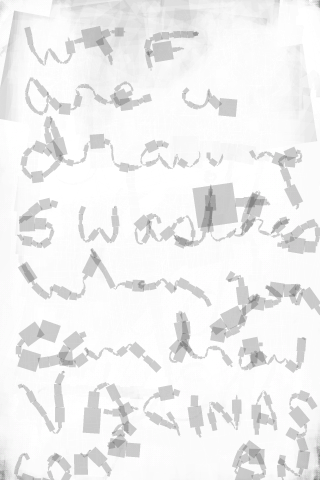 WTF
are u
drawing
swastikas
when you
can draw
VAGINAS